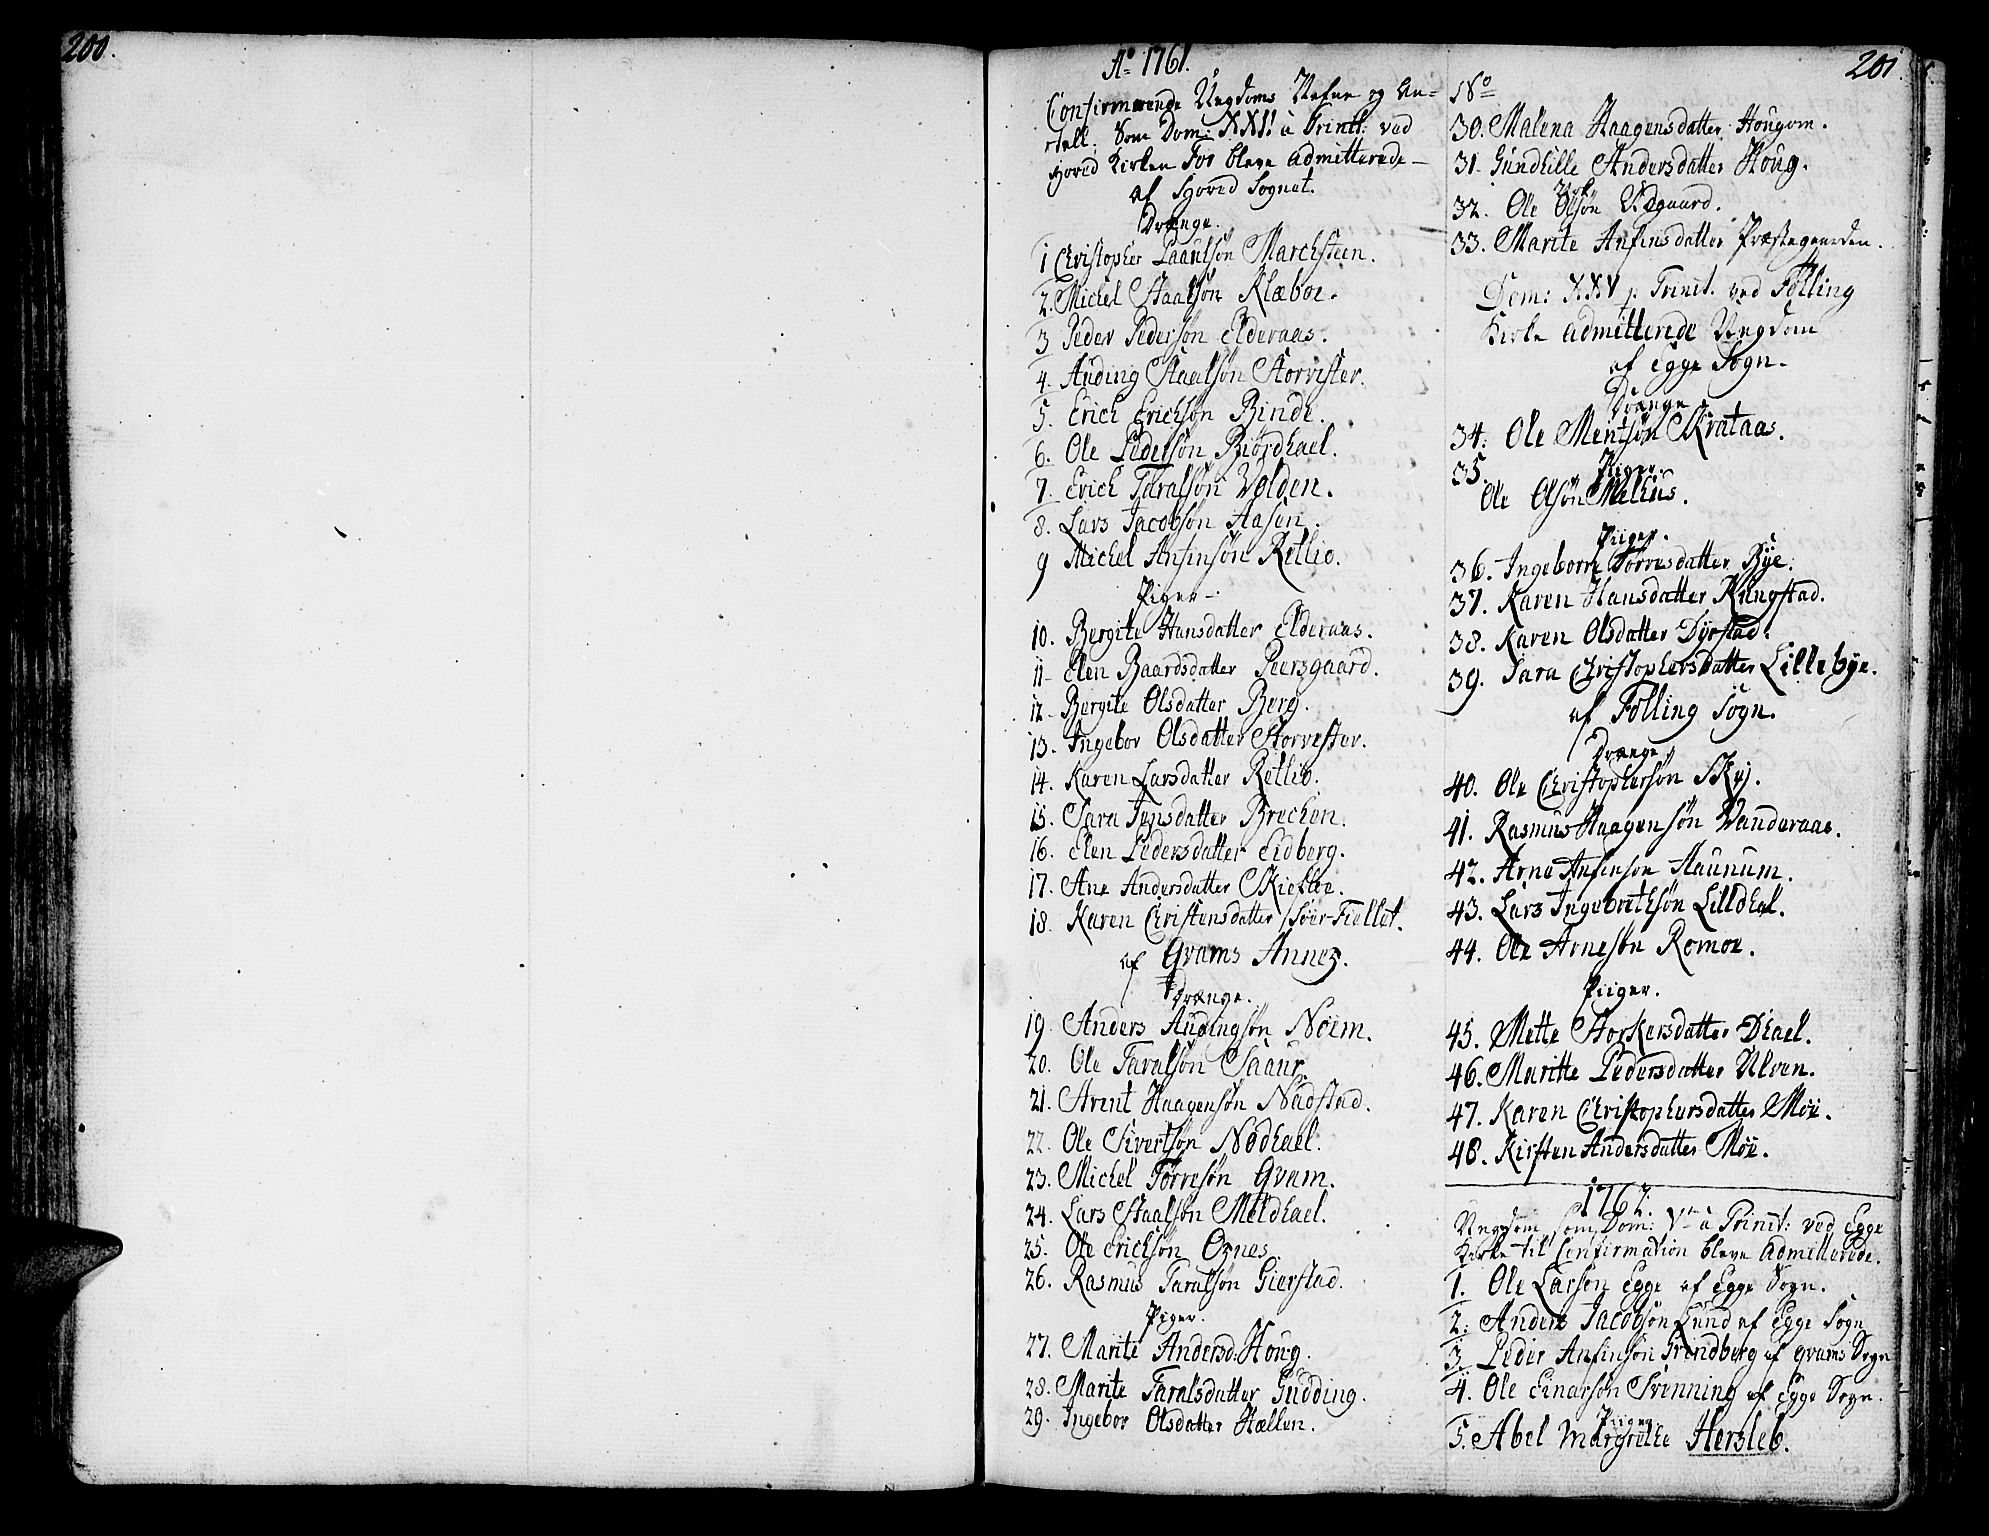 200.
Aº 1761.
Confirmerende Ungdoms Nefne og An-
tall. Som Dom: XXI! a Trinit: ved
Hoved Kirken For bleve admitterede
af Hoved Sognet.
Drænge.
1 Christopher Paaulsøn Marchsteen.
2. Michel Staalsøn Klæboe.
3 Peder Pedersøn Elderaas.
4. Auding Staalsøn Storvister.
5. Erich Erichsøn Binde.
6. Ole Pedersøn Biørdhael.
7. Erich Taralsøn Volden.
8. Lars Jacobsøn Aasen.
9 Michel Anfinsøn Retlio.
Piger
10. Bergite Hansdatter Elderaas.
11 Elen Baardsdatter Peersgaard.
12 Bergite Olsdatter Berg.
13. Ingebor Olsdatter Storvester.
14. Karen Larsdatter Retlio.
15. Sara Jensdatter Brechen.
16. Elen Pedersdatter Eidberg.
17. Ane Andersdatter Skieftee.
18. Karen Christensdatter Søer-Fiellet.
af Qvams Annex.
Drænge.
19. Anders Audingsøn Nøem.
20. Ole Taralsøn Saaur
21. Arent Haagensøn Nadstad.
22. Ole Sivertsøn Nødhael.
23. Michel Torresøn Qvam.
24. Lars Staalsøn Meldhael.
25. Ole Erichsøn Oxnes.
26. Rasmus Taralsøn Gierstad.
Piger.
27. Marite Andersd: Houg.
28. Marite Taralsdatter Gudding.
29. Ingebor Olsdatter Hællen.
201.
Nº
30. Malena Haagensdatter Hougom.
31. Gundhille Andersdatter Houg.
32. Ole Olsøn Vedgaard.
33. Marite Anfinsdatter Præstegaarden.
Dom: XXV p. Trinit. ved Følling
Kirke admitterede Ungdom
af Egge Sogn.
Drænge
34. Ole Mentsøn Skrataas.
Piger.
35. Ole Olsøn Melhus.
Piiger.
36. Ingeborre Torresdatter Bye.
37. Karen Hansdatter Kungstad.
38. Karen Olsdatter Dyrstad.
39. Sara Christophersdatter Lillebye.
af Følling Sogn.
Drænge
40. Ole Christophersøn Skej.
41. Rasmus Haagensøn Vanderaas.
42. Arne Anfinsøn Haunum.
43. Lars Ingebrethsøn Lilldhal.
44. Ole Arnesøn Romoe.
Piiger.
45. Mette Storkersdatter Dhael.
46. Maritte Pedersdatter Ulven.
47. Karen Christophersdatter Moe.
48. Kirsten Andersdatter Moe.
1762.
Ungdom, som Dom: V a Trinit: ved Egge
Kirke til Confirmation bleve admitterede.
1. Ole Larsøn Egge af Egge Sogn.
2. Anders Jacobsøn Lund af Egge Sogn
3. Peder Anfinsøn Grindberg af qvams Sogn
4. Ole Einarsøn Svenning af Egge Sogn.
Piiger.
5. Abel Margrethe Hersleb.